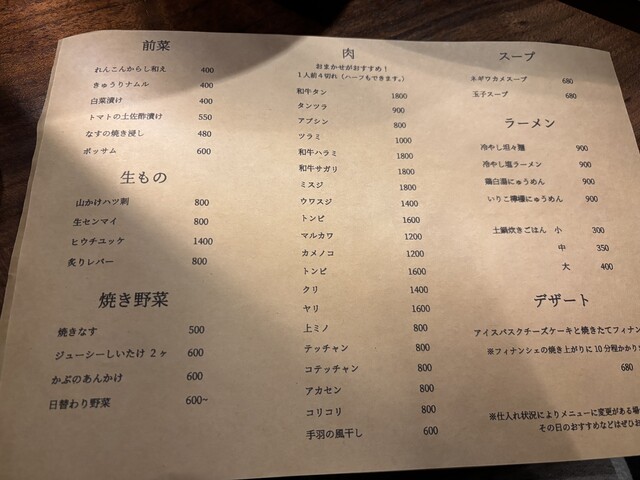 前菜
れんこんからし和え 400
きゅうりナムル 400
白菜漬け 400
トマトの土佐酢漬け 550
なすの焼き浸し 480
ポッサム 600
生もの
山かけハツ刺 800
生センマイ 800
ヒウチユッケ 1400
炙りレバー 800
焼き野菜
焼きなす 500
ジューシーしいたけ 2ヶ 600
かぶのあんかけ 600
日替わり野菜 600~
肉
おまかせがおすすめ！
1人前4切れ（ハーフもできます。）
和牛タン 1800
タンツラ 900
アブシン 800
ツラミ 1000
和牛ハラミ 1800
和牛サガリ 1800
ミスジ 1800
ウワスジ 1400
トンビ 1600
マルカワ 1200
カメノコ 1200
トンビ 1600
クリ 1400
ヤリ 1600
上ミノ 800
テッチャン 800
コテッチャン 800
アカセン 800
コリコリ 800
手羽の風干し 600
スープ
ネギワカメスープ 680
玉子スープ 680
ラーメン
冷やし坦々麺 900
冷やし塩ラーメン 900
鶏白湯にゅうめん 900
いりこ檸檬にゅうめん 900
土鍋炊きごはん 小 300
中 350
大 400
デザート
アイスバスクチーズケーキと焼きたてフィナン
※フィナンシェの焼き上がりに10分程かかり
680
※仕入れ状況によりメニューに変更がある場
その日のおすすめなどはぜひお